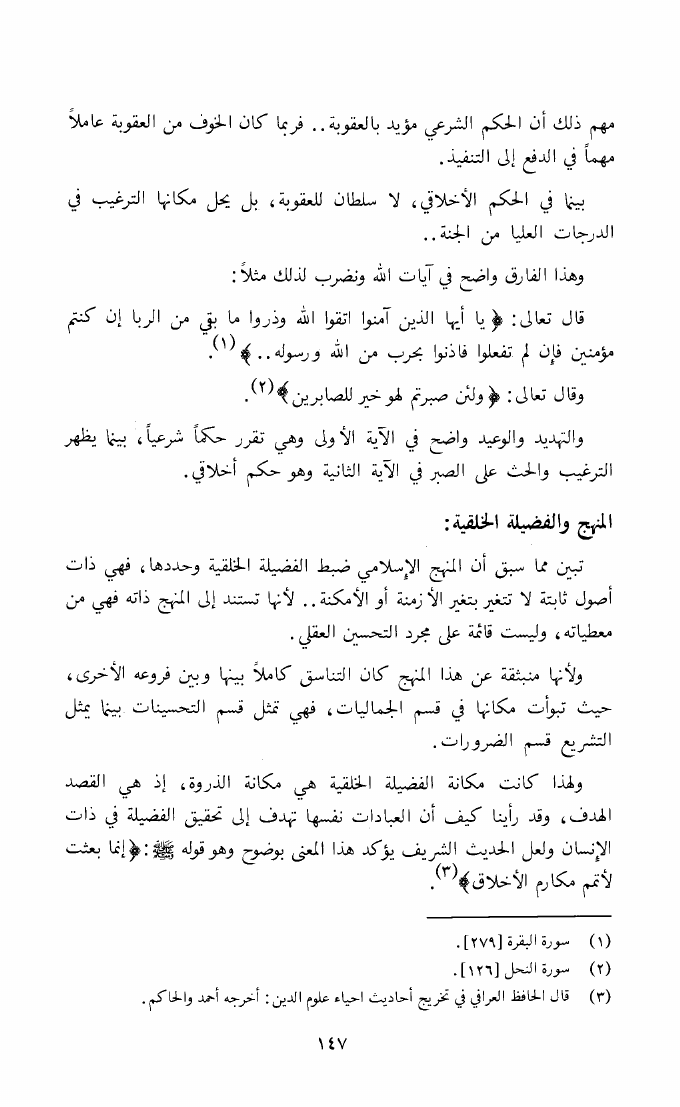 مهم ذلك أن الحكم الشرعي مؤيد بالعقوبة.. فربما كان الخوف من العقوبة عاملاً
مهماً في الدفع إلى التنفيذ.
بينما في الحكم الأخلاقي، لا سلطان للعقوبة، بل يحل مكانها الترغيب في
الدرجات العليا من الجنة..
وهذا الفارق واضح في آيات الله ونضرب لذلك مثلاً:
قال تعالى: ﴿ يا أيها الذين آمنوا اتقوا الله وذروا ما بقي من الربا إن كنتم
مؤمنين فإن لم تفعلوا فاذنوا بحرب من الله ورسوله.. ﴾(١).
وقال تعالى: ﴿ ولئن صبرتم لهو خير للصابرين ﴾(٢).
والتهديد والوعيد واضح في الآية الأولى وهي تقرر حكماً شرعياً، بينما يظهر
الترغيب والحث على الصبر في الآية الثانية وهو حكم أخلاقي.
المنهج والفضيلة الخلقية:
تبين مما سبق أن المنهج الإسلامي ضبط الفضيلة الخلقية وحددها، فهي ذات
أصول ثابتة لا تتغير بتغير الأزمنة أو الأمكنة.. لأنها تستند إلى المنهج ذاته فهي من
معطياته، وليست قائمة على مجرد التحسين العقلي.
ولأنها منبثقة عن هذا المنهج كان التناسق كاملاً بينها وبين فروعه الأخرى،
حيث تبوأت مكانها في قسم الجماليات، فهي تمثل قسم التحسينات بينما يمثل
التشريع قسم الضرورات.
ولهذا كانت مكانة الفضيلة الخلقية هي مكانة الذروة، إذ هي القصد
الهدف، وقد رأينا كيف أن العبادات نفسها تهدف إلى تحقيق الفضيلة في ذات
الإنسان ولعل الحديث الشريف يؤكد هذا المعنى بوضوح وهو قوله ﷺ: ﴿إنما بعثت
لأتمم مكارم الأخلاق﴾(٣).
(١) سورة البقرة [٢٧٩].
(٢) سورة النحل [١٢٦].
(٣) قال الحافظ العراقي في تخريج أحاديث احياء علوم الدين: أخرجه أحمد والحاكم.
١٤٧